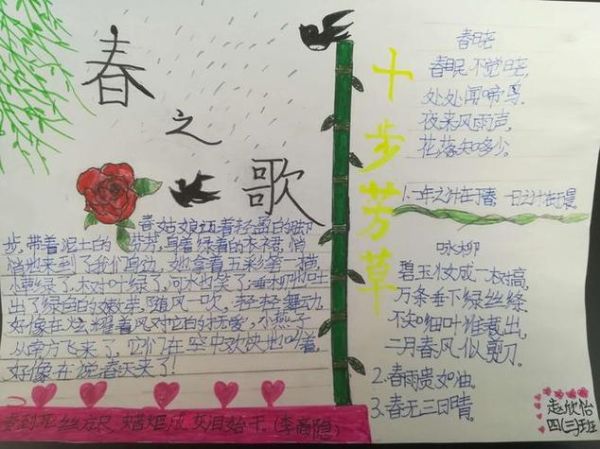 春之歌
春姑娘迈着轻盈的脚
步,带着泥土的芬芳,穿着绿着的衣裙,悄
悄地来到了我们身边,她拿着五彩笔一描,
小草绿了,木对叶绿了,河水也笑了;垂柳也吐
出了绿色的嫩芽,随风一吹,轻轻舞动,
好像在炫耀着风对它的特无爱,小燕子
从南方飞来了,它们在空中欢快地叫着,
好像在说:春天来了!
春到死丝方尽,蜡炬成灰泪始干。(李商隐)
十步芳草
春晓
春眠不觉晓,
处处闻啼鸟。
夜来风雨声,
花落知多少。
1.一年之计在于春 一日之计在于晨
咏柳
碧玉妆成一树高,
万条垂下绿丝绦。
不知细叶谁裁出,
二月春风似剪刀。
2.春雨贵如油。
3.春无三日晴。
赵欣怡
四(三)班